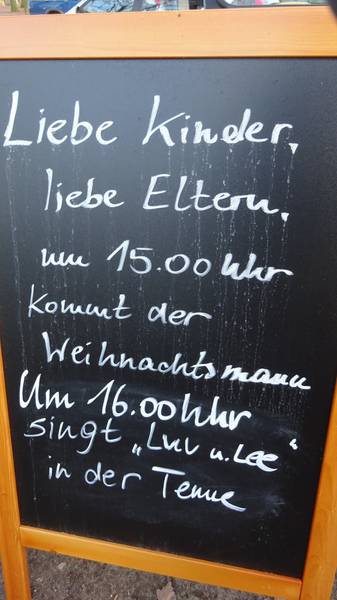 Liebe Kinder,
liebe Eltern,
um 15.00 Uhr
kommt der
Weihnachtsmann
Um 16.00 Uhr
singt „Luv u. Lee“
in der Tenne